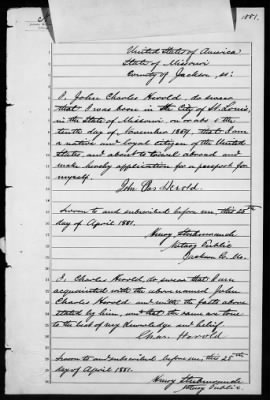 1881.
United States of America
State of Missouri
County of Jackson, ss:
I, John Charles Herold, do swear
that I was born in the City of St. Louis,
in the State of Missouri, on or abt the
tenth day of November 1857, that I am
a native and loyal citizen of the United
States, and about to travel abroad and
make hereby application for a passport for
myself.
John Chas Herold.
Sworn to and subscribed before me, this 25th
day of April 1881.
Henry
Notary Public
Jackson Co. Mo.
I, Charles Herold, do swear that I am
acquainted with the above named John
Charles Herold and with the facts above
stated by him, and that the same are true
to the best of my knowledge and belief.
Chas. Herold
Sworn to and subscribed before me, this 25th
day of April 1881.
Henry
Notary Public.